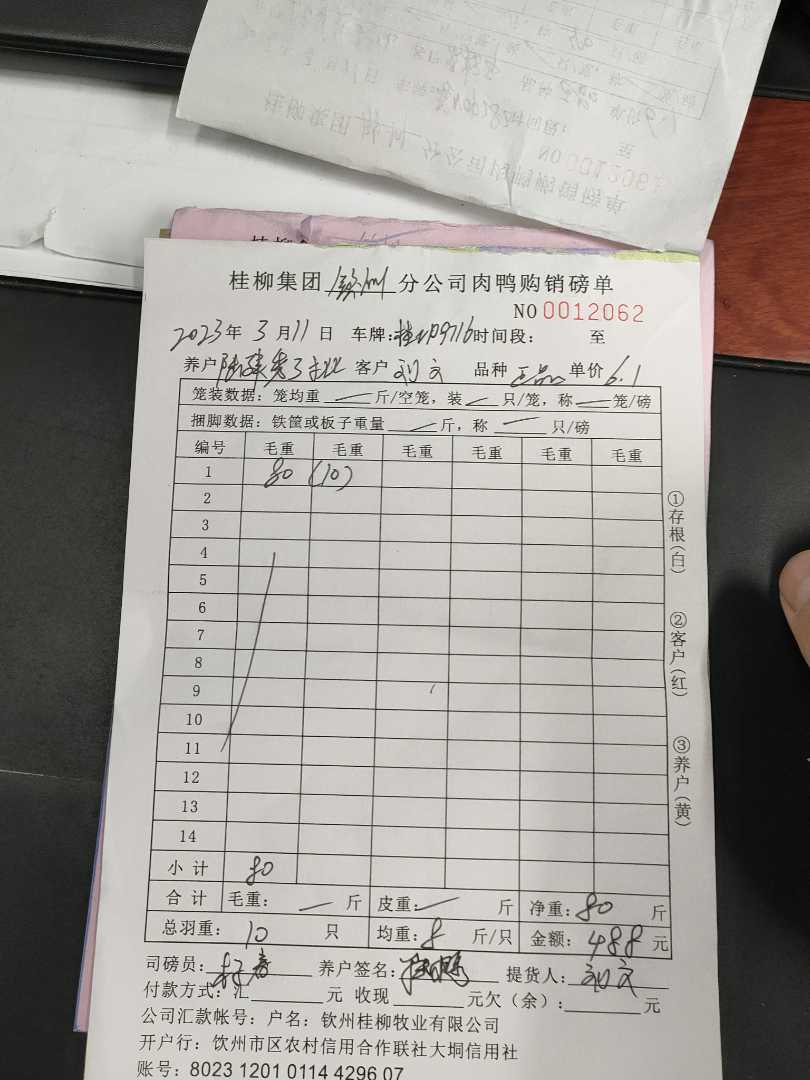 桂柳集团 钦州 分公司肉鸭购销磅单
NO 0012062
2023年 3月11日 车牌: 时间段: 至
养户 客户 刘文 品种 正品 单价 6.1
笼装数据: 笼均重 斤/空笼, 装 只/笼, 称 笼/磅
捆脚数据: 铁筐或板子重量 斤, 称 只/磅
编号 毛重 毛重 毛重 毛重 毛重 毛重
1 80 (10)
2
3
4
5
6
7
8
9
10
11
12
13
14
小计 80
合计 毛重: 斤 皮重: 斤 净重: 80 斤
总羽重: 10 只 均重: 8 斤/只 金额: 488 元
司磅员: 养户签名: 提货人: 刘文
付款方式: 汇 元 收现 元欠(余): 元
公司汇款帐号: 户名: 钦州桂柳牧业有限公司
开户行: 钦州市区农村信用合作联社大垌信用社
账号: 8023 1201 0114 4296 07
①存根(白)
②客户(红)
③养户(黄)